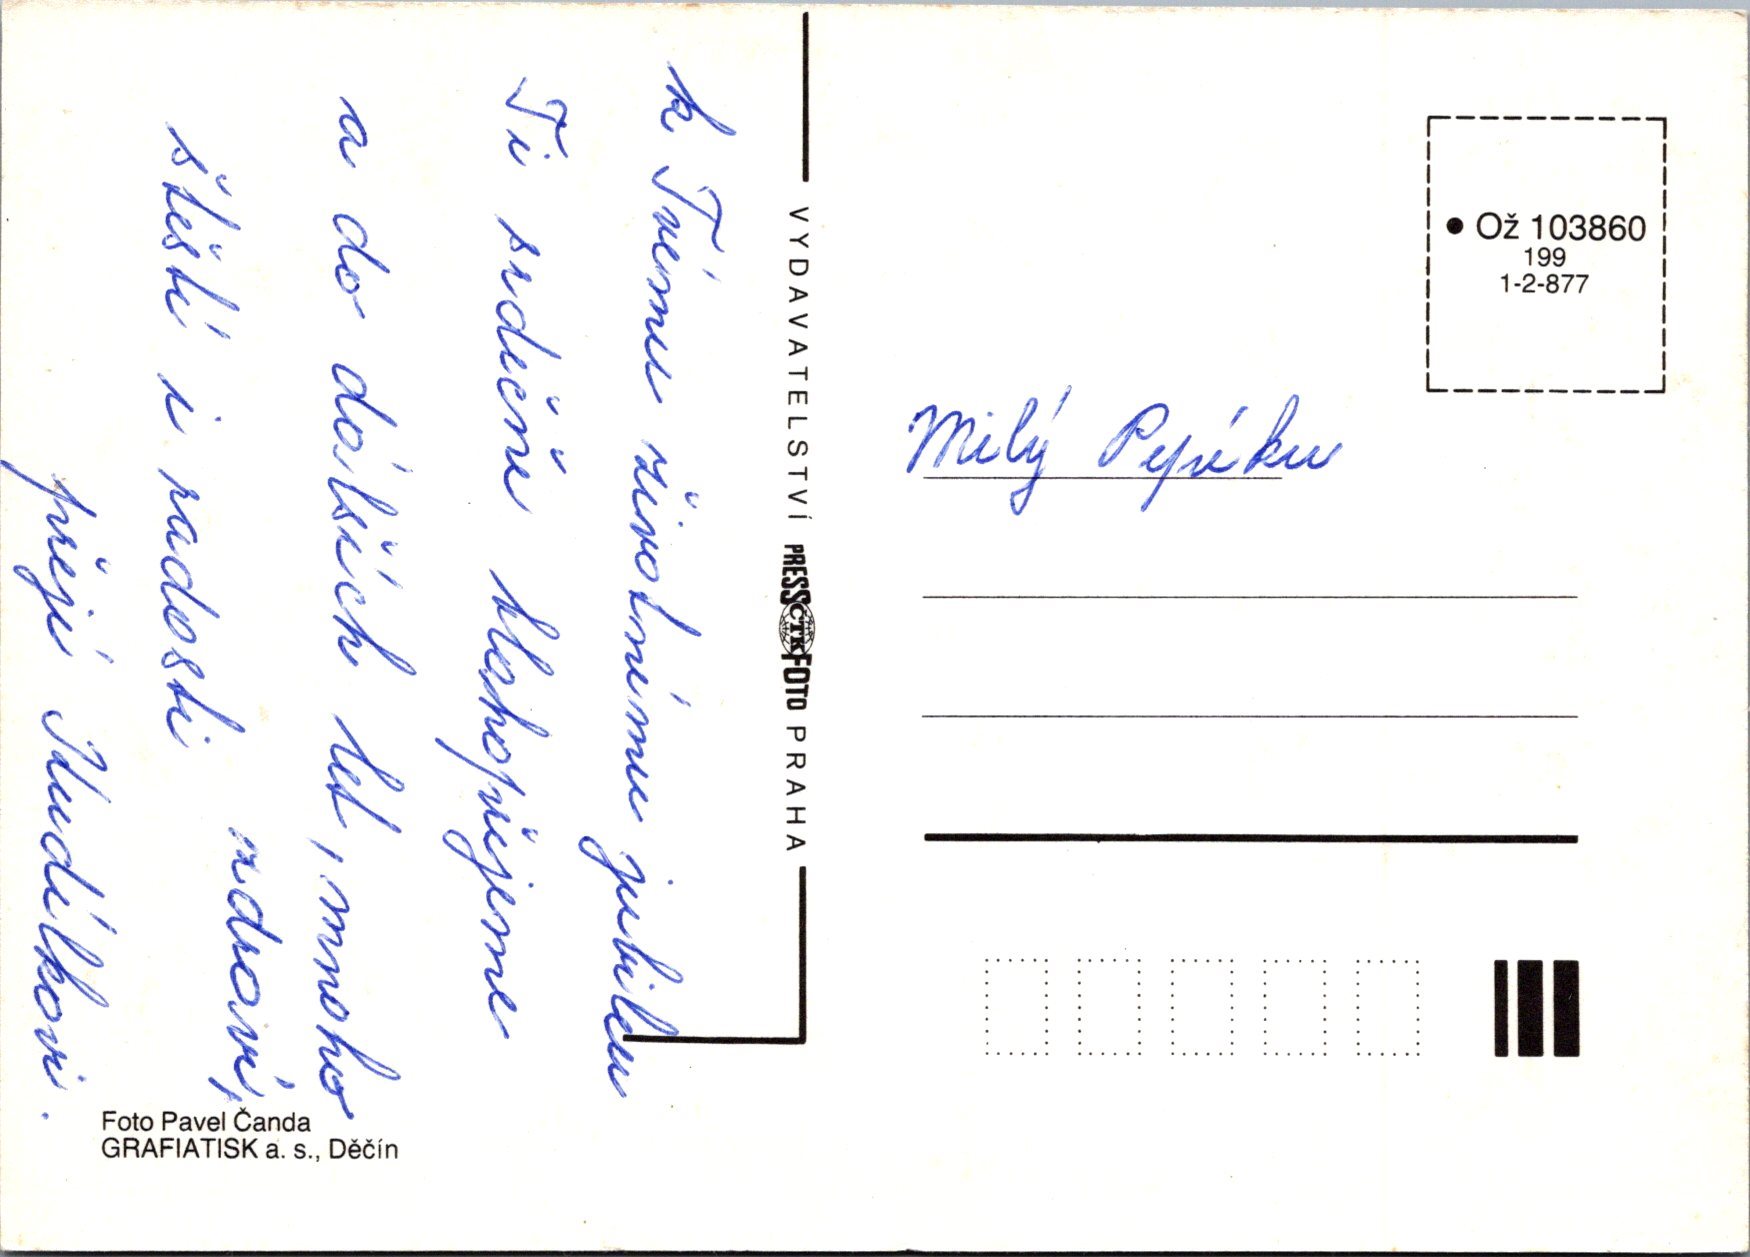 Milý Pepíku
k Tvému životnímu jubileu
Ti srdečně blahopřejeme
a do dalších let, mnoho
zdraví,
štěstí i radosti
přejí
VYDAVATELSTVÍ PRESSFOTO PRAHA
ČTK
● Ož 103860
199
1-2-877
Foto Pavel Čanda
GRAFIATISK a. s., Děčín